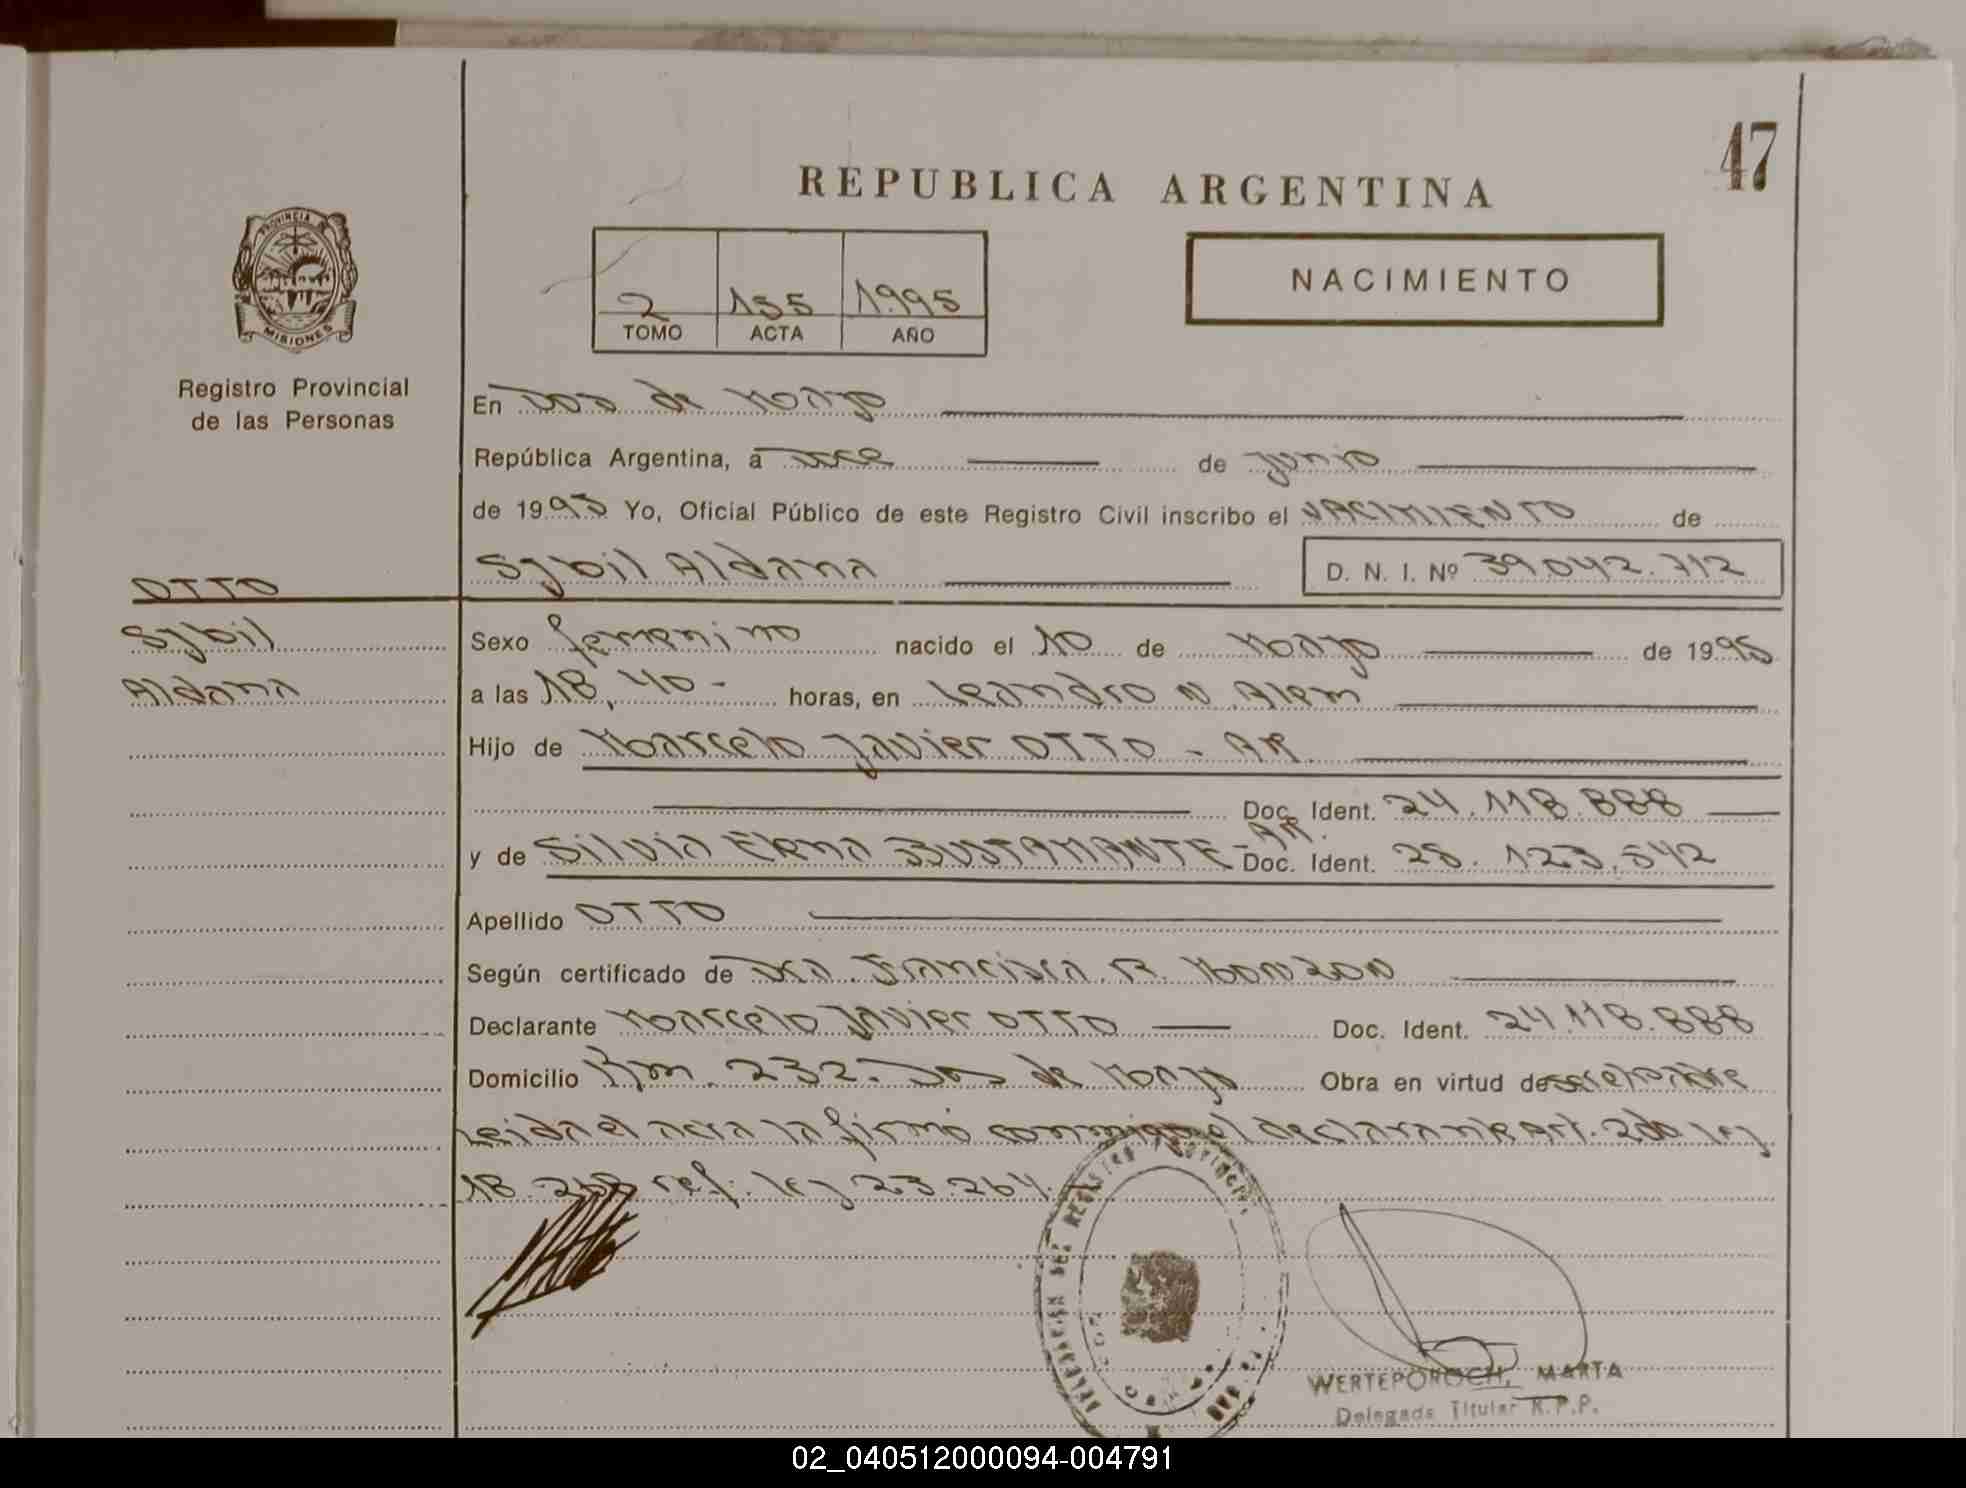 47
REPUBLICA ARGENTINA
PROVINCIA DE
MISIONES
Registro Provincial
de las Personas
2 155 1.995
TOMO ACTA AÑO
NACIMIENTO
En Dos de Marzo
República Argentina, a doce de junio
de 1995 Yo, Oficial Público de este Registro Civil inscribo el NACIMIENTO de
OTTO
Sybil Aldana D. N. I. Nº 39.042.712
Sybil
Sexo femenino nacido el 10 de Marzo de 1995
Aldana
a las 18,40- horas, en Leandro N. Alem
Hijo de Marcelo Javier OTTO - AR.
Doc. Ident. 24.118.888
y de Silvia Elena BUSTAMANTE - AR. Doc. Ident. 25.123.542
Apellido OTTO
Según certificado de Dra. Francisca R. Monzon
Declarante Marcelo Javier OTTO Doc. Ident. 24.118.888
Domicilio Km. 232. Dos de Marzo Obra en virtud de
Leida el acta la firmó conmigo el declarante art. 2do ley
18. ref. ley 23.264.
WERTEPOROCH, MARTA
Delegada Titular R.P.P.
02_040512000094-004791